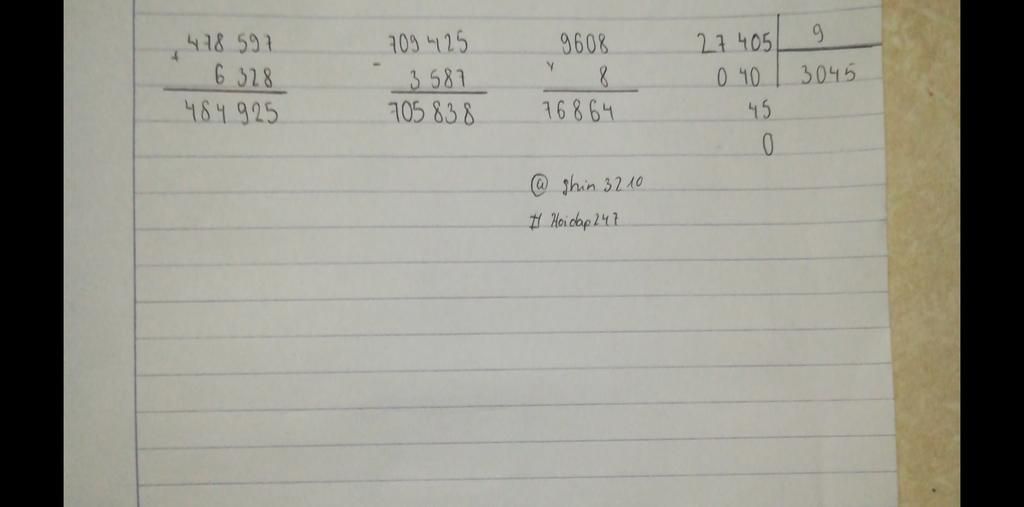 478 597 709 425 9608 27 405 9
+ 6 328 - 3 587 x 8 0 40 3045
484 925 705 838 76864 45
0
@ ghin 3210
# Hoidap247